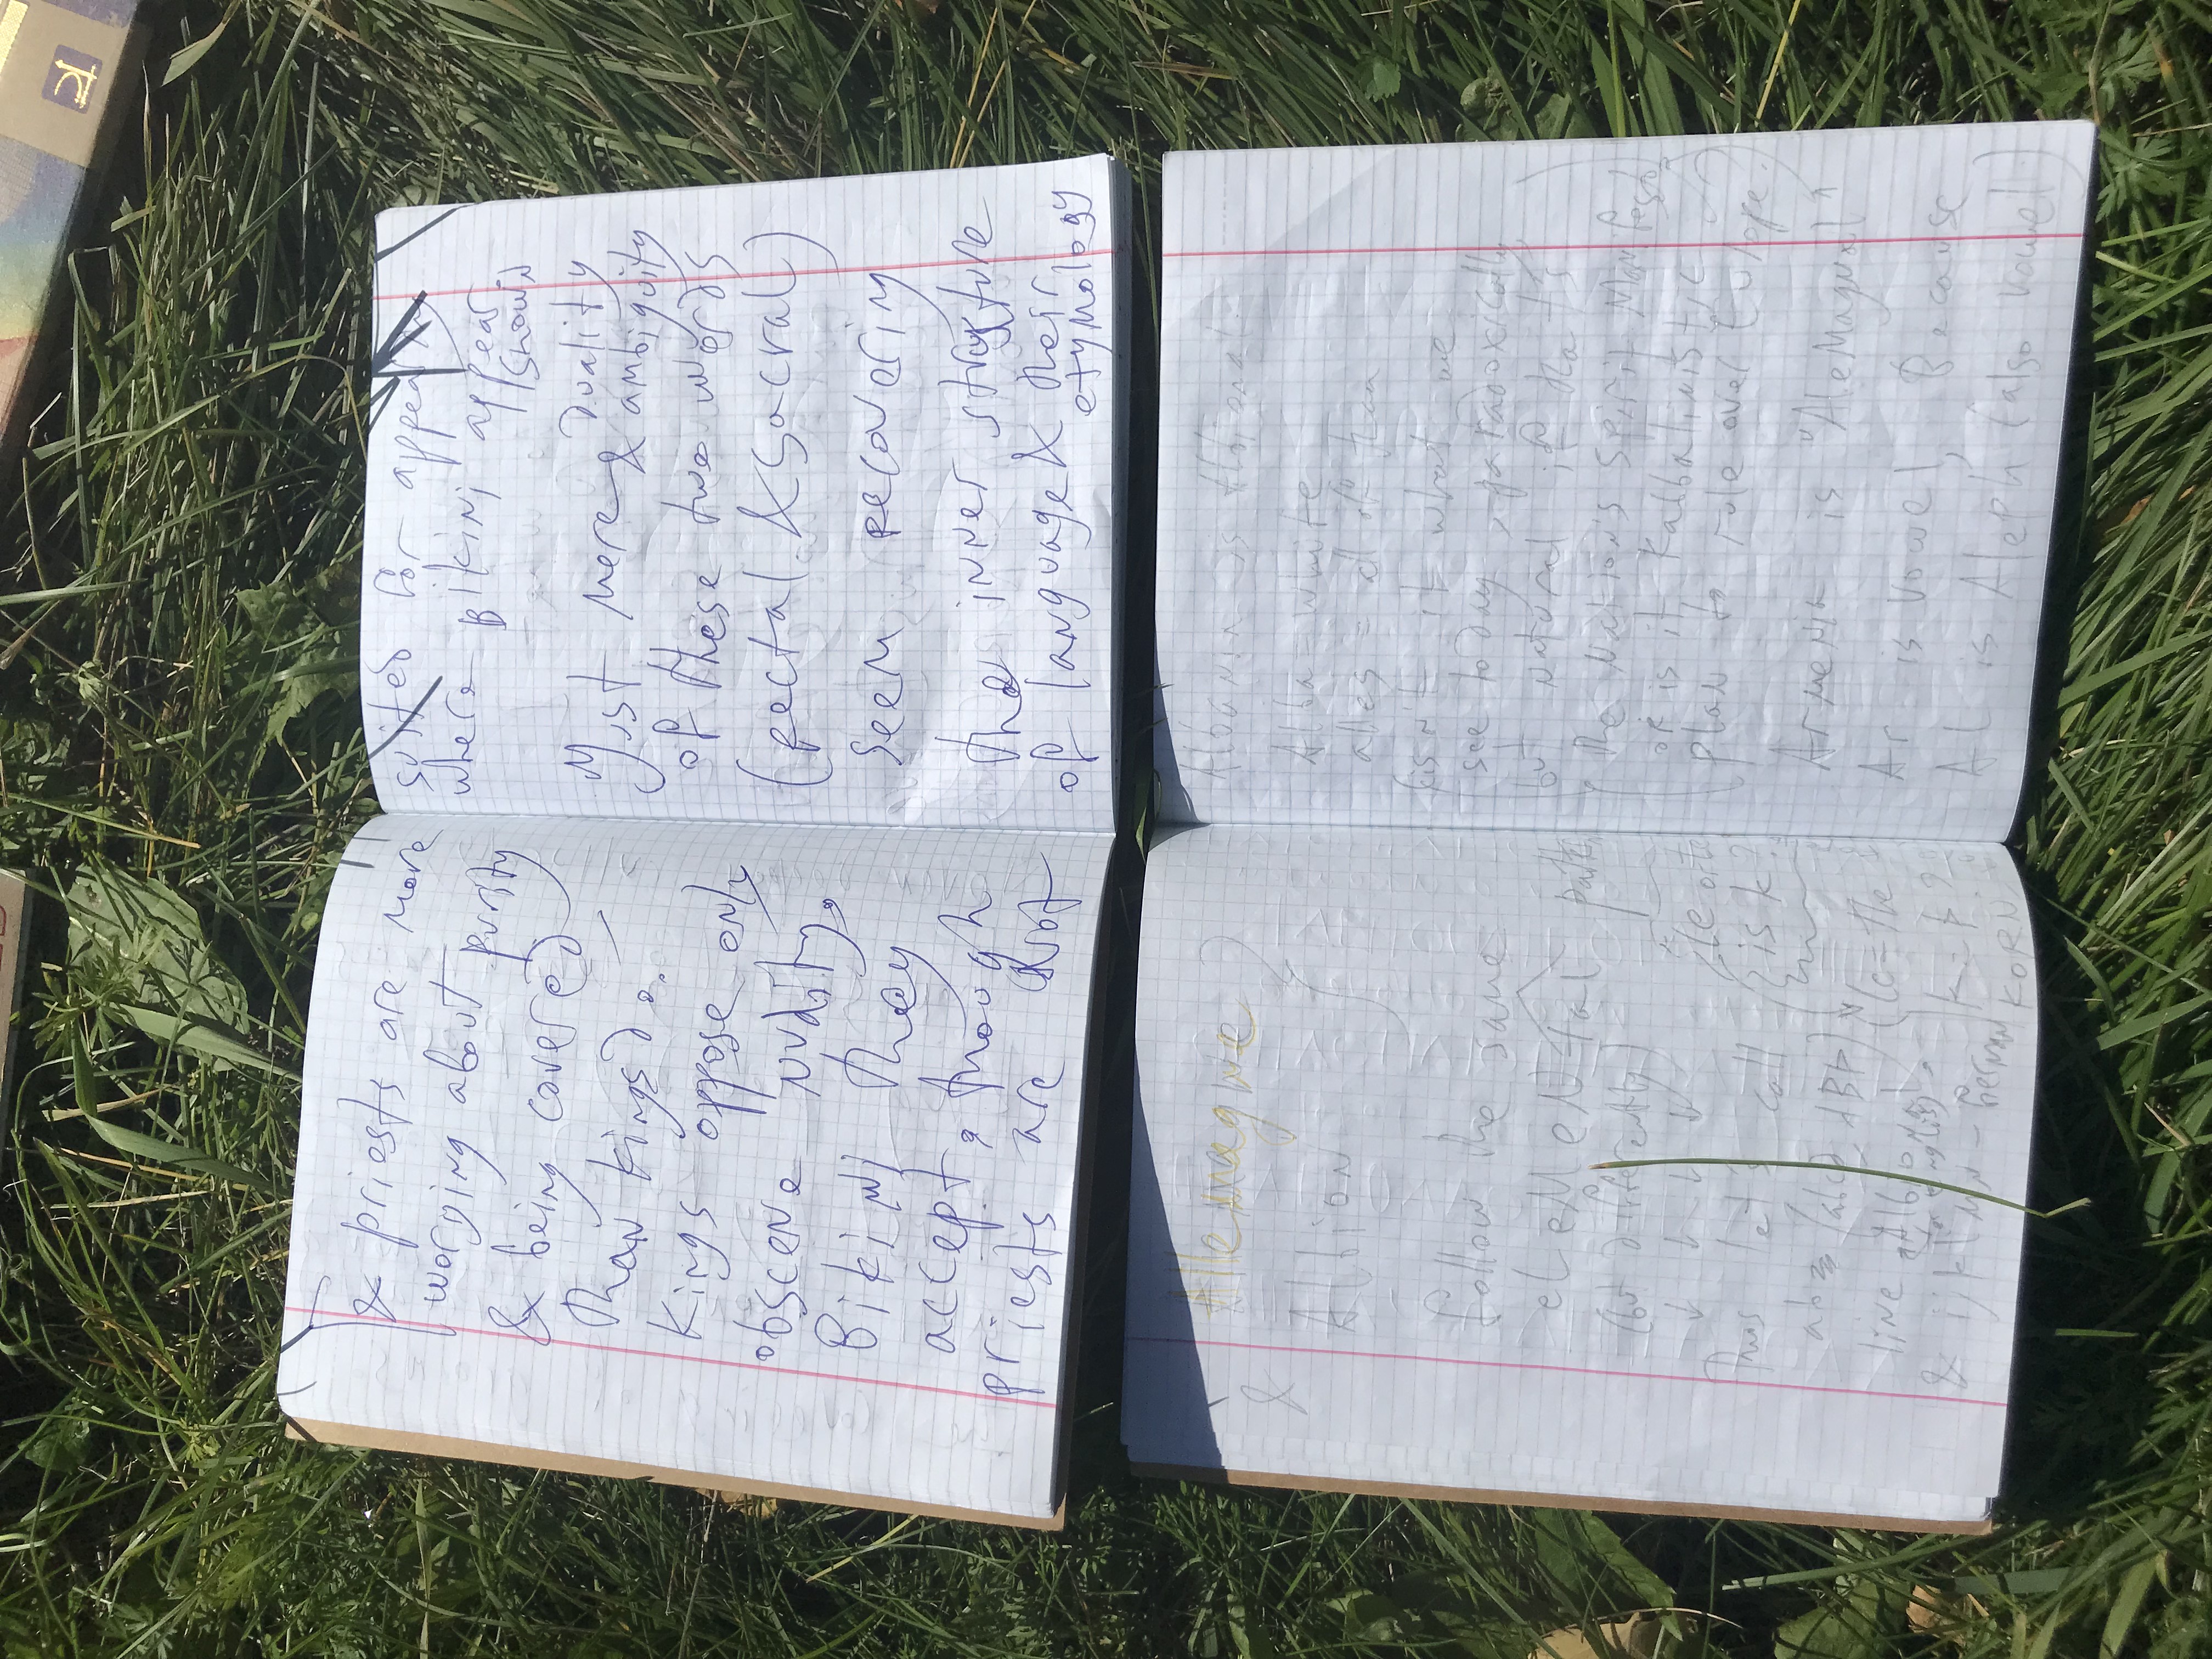 & priests are more
worrying about purity
& being covered
than kings do.
Kings oppose only
obscene nudity,
Bikini they
accept, though
priests are not
suited for appearing
where Bikini appear
shown
Just mere duality
& ambiguity
of these two words
(rectal & sacral)
seem recovering
the inner structure
of language & their
etymology
Allemagne
&
Albion
follow the same
eLeMeNtal path
(but differently)
↓ ↓ ↓ ↓
Thus let's call
is k?
line Albional
& ijklmn - German
(le = the
k = t?
KORN
Albanin is Albional
Alba = white
alles = all of them
(isn't it what we
see today, paradoxically
but natural if that's
the Nation's Spirit Manifesto
or is it Kabbalinistic
plan to rule over Europe.
Armenia is "AleMagnal"
Ar is vowel, Because
Al is Aleph (also vowel)